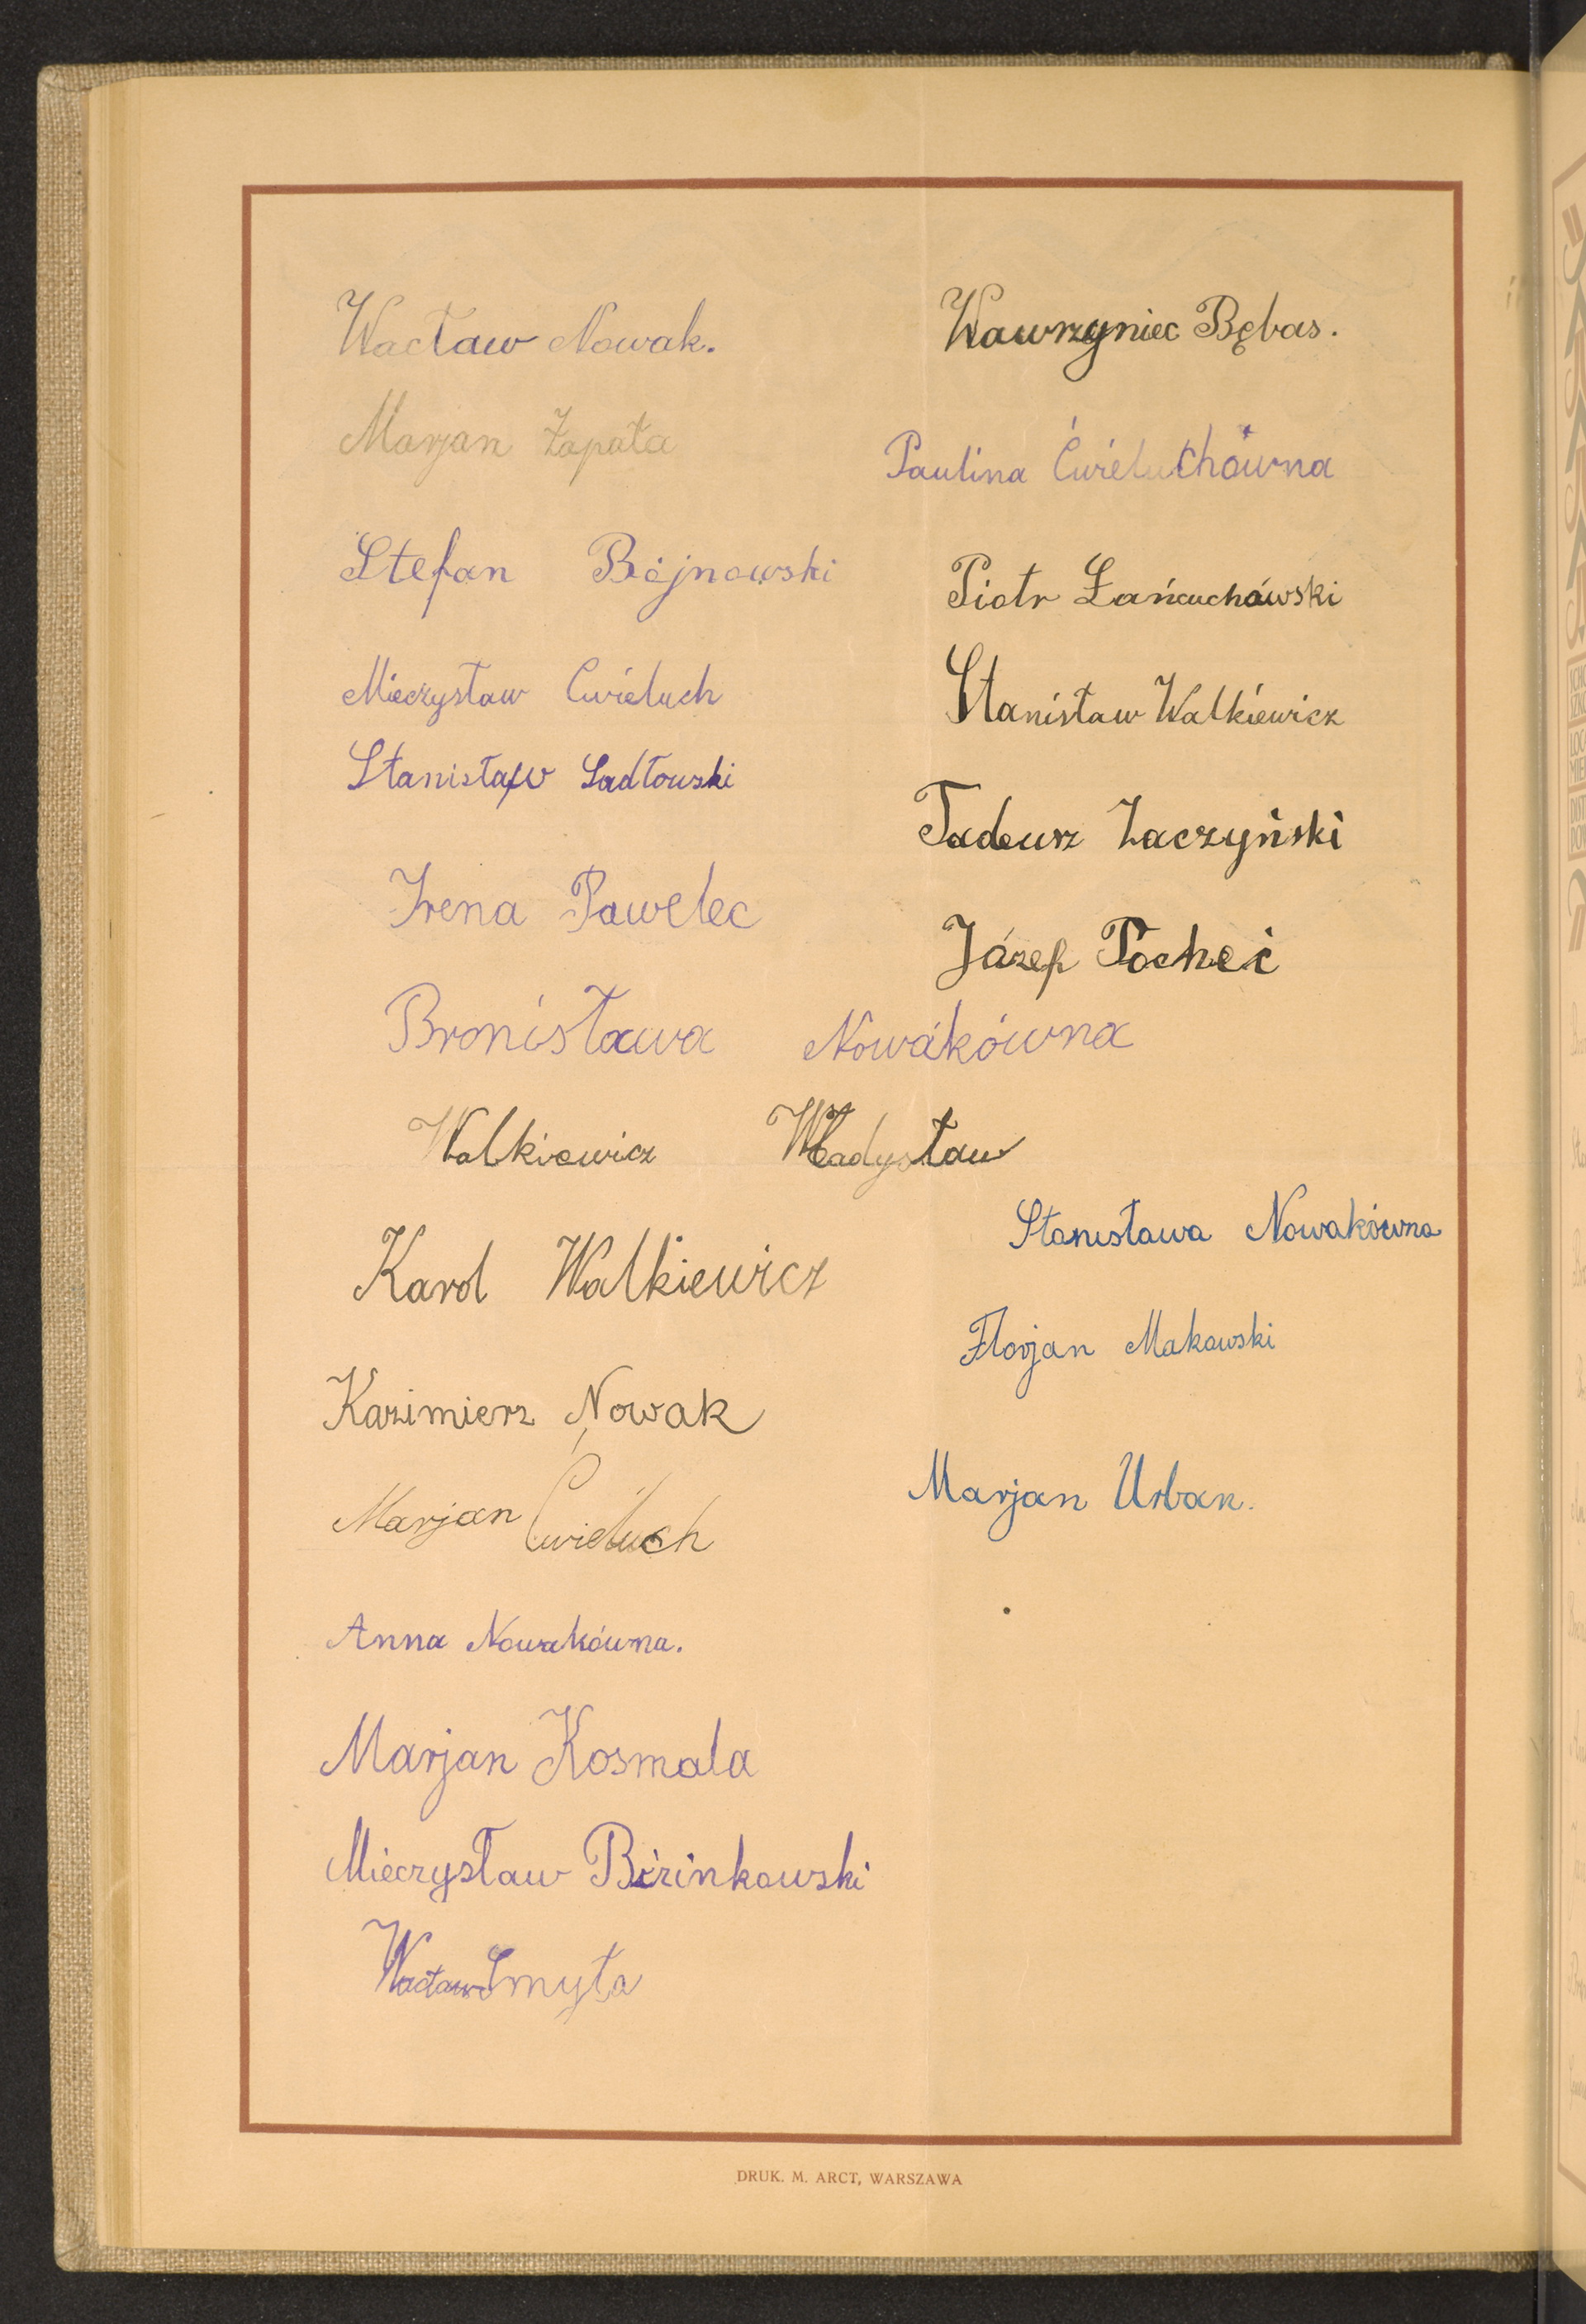 Wacław Nowak.
Marjan Zapała
Stefan Bójnowski
Mieczysław Ćwieluch
Stanisław Sadłowski
Irena Pawelec
Bronisława Nowakówna
Walkiewicz Władysław
Karol Walkiewicz
Kazimierz Nowak
Marjan Ćwieluch
Anna Nowakówna.
Marjan Kosmala
Mieczysław Birinkowski
Wacław Smyła
Wawrzyniec Bębas.
Paulina Ćwieluchówna
Piotr Łańcuchowski
Stanisław Walkiewicz
Tadeusz Zaczyński
Józef Pocheć
Stanisława Nowakówna
Florjan Makowski
Marjan Urban.
DRUK. M. ARCT, WARSZAWA